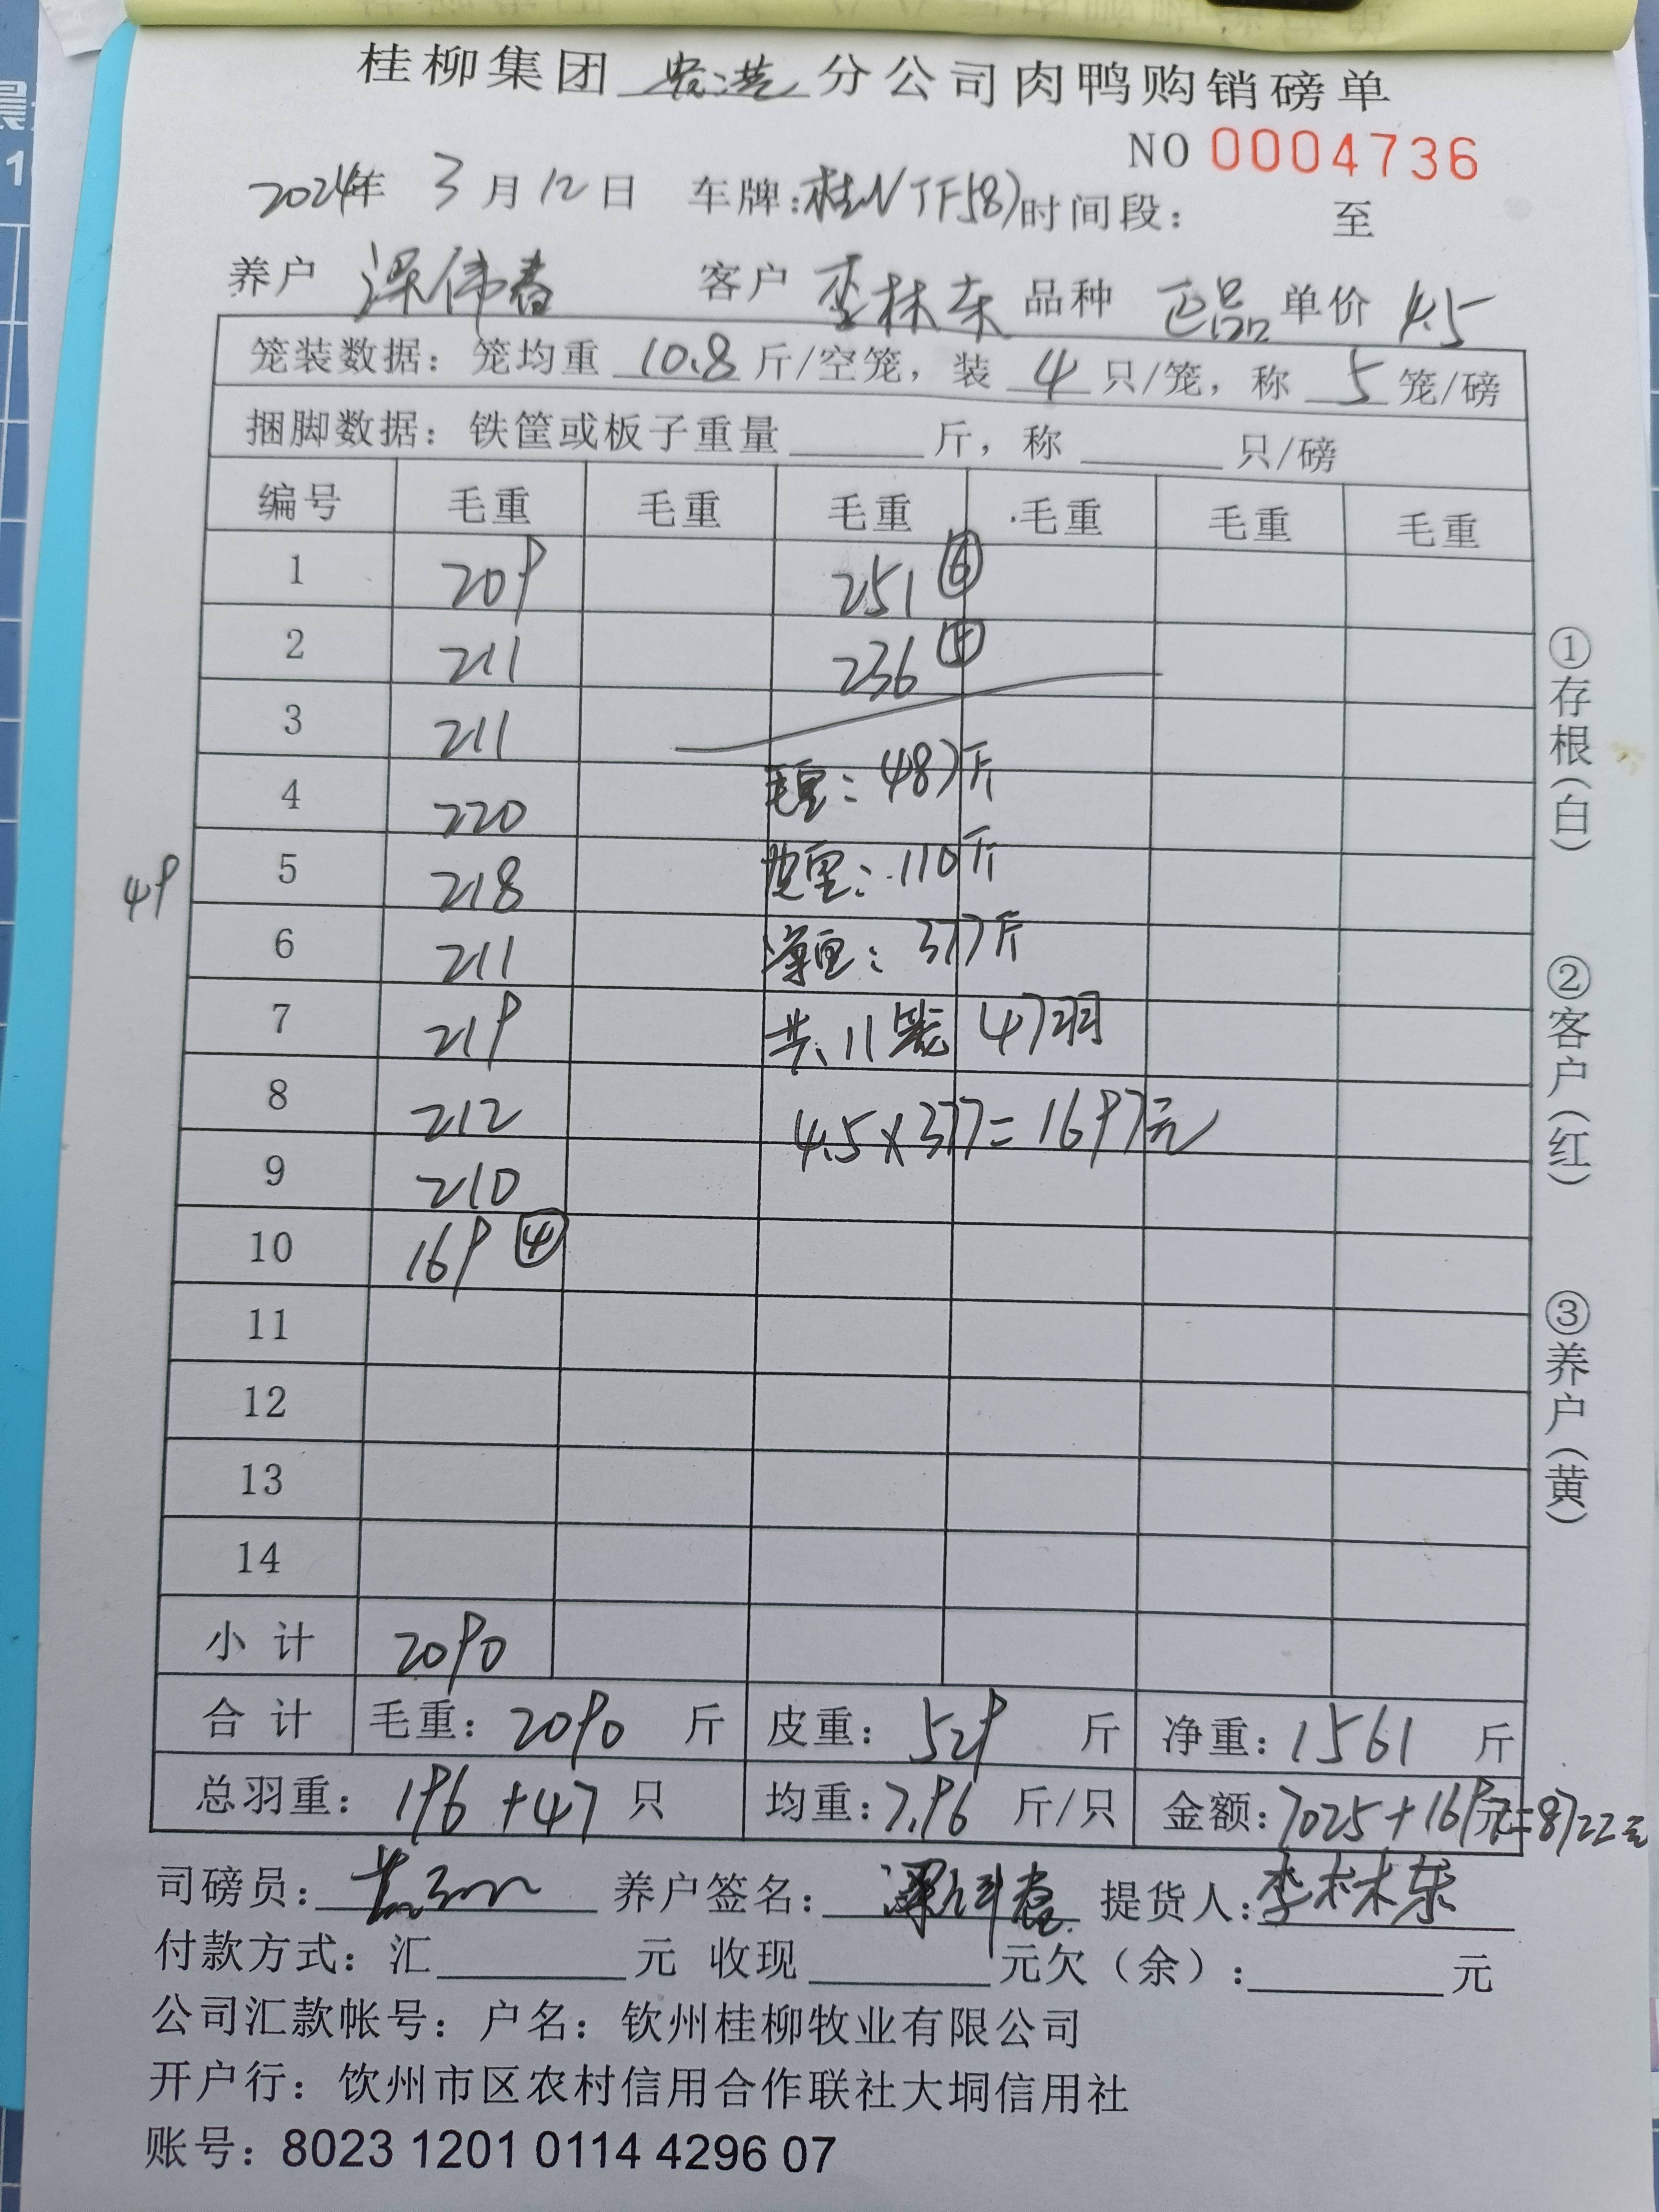 桂柳集团 贵港 分公司肉鸭购销磅单
NO 0004736
2024年 3月12日 车牌:桂NTF587 时间段: 至
养户 梁伟春 客户 李林东 品种 正品 单价 4.5
笼装数据: 笼均重 10.8 斤/空笼, 装 4 只/笼, 称 5 笼/磅
捆脚数据: 铁筐或板子重量 斤, 称 只/磅
编号 毛重 毛重 毛重 毛重 毛重 毛重
1 209 251 ⑥
2 211 236 ⑤
3 211
4 220 毛重: 487斤
49 5 218 皮重: 110斤
6 211 净重: 377斤
7 219 共11笼 47羽
8 212 4.5×377=1697元
9 210
10 169 ④
11
12
13
14
小计 2090
合计 毛重: 2090 斤 皮重: 529 斤 净重: 1561 斤
总羽重: 196+47 只 均重: 7.96 斤/只 金额: 7025+1697元=8722元
司磅员: 养户签名: 梁伟春 提货人: 李林东
付款方式: 汇 元 收现 元欠(余): 元
公司汇款帐号: 户名: 钦州桂柳牧业有限公司
开户行: 钦州市区农村信用合作联社大垌信用社
账号: 8023 1201 0114 4296 07
①存根(白)
②客户(红)
③养户(黄)